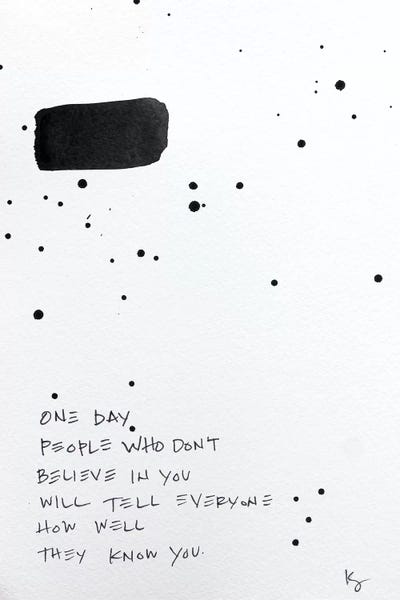 ONE DAY
PEOPLE WHO DON'T
BELIEVE IN YOU
WILL TELL EVERYONE
HOW WELL
THEY KNOW YOU.